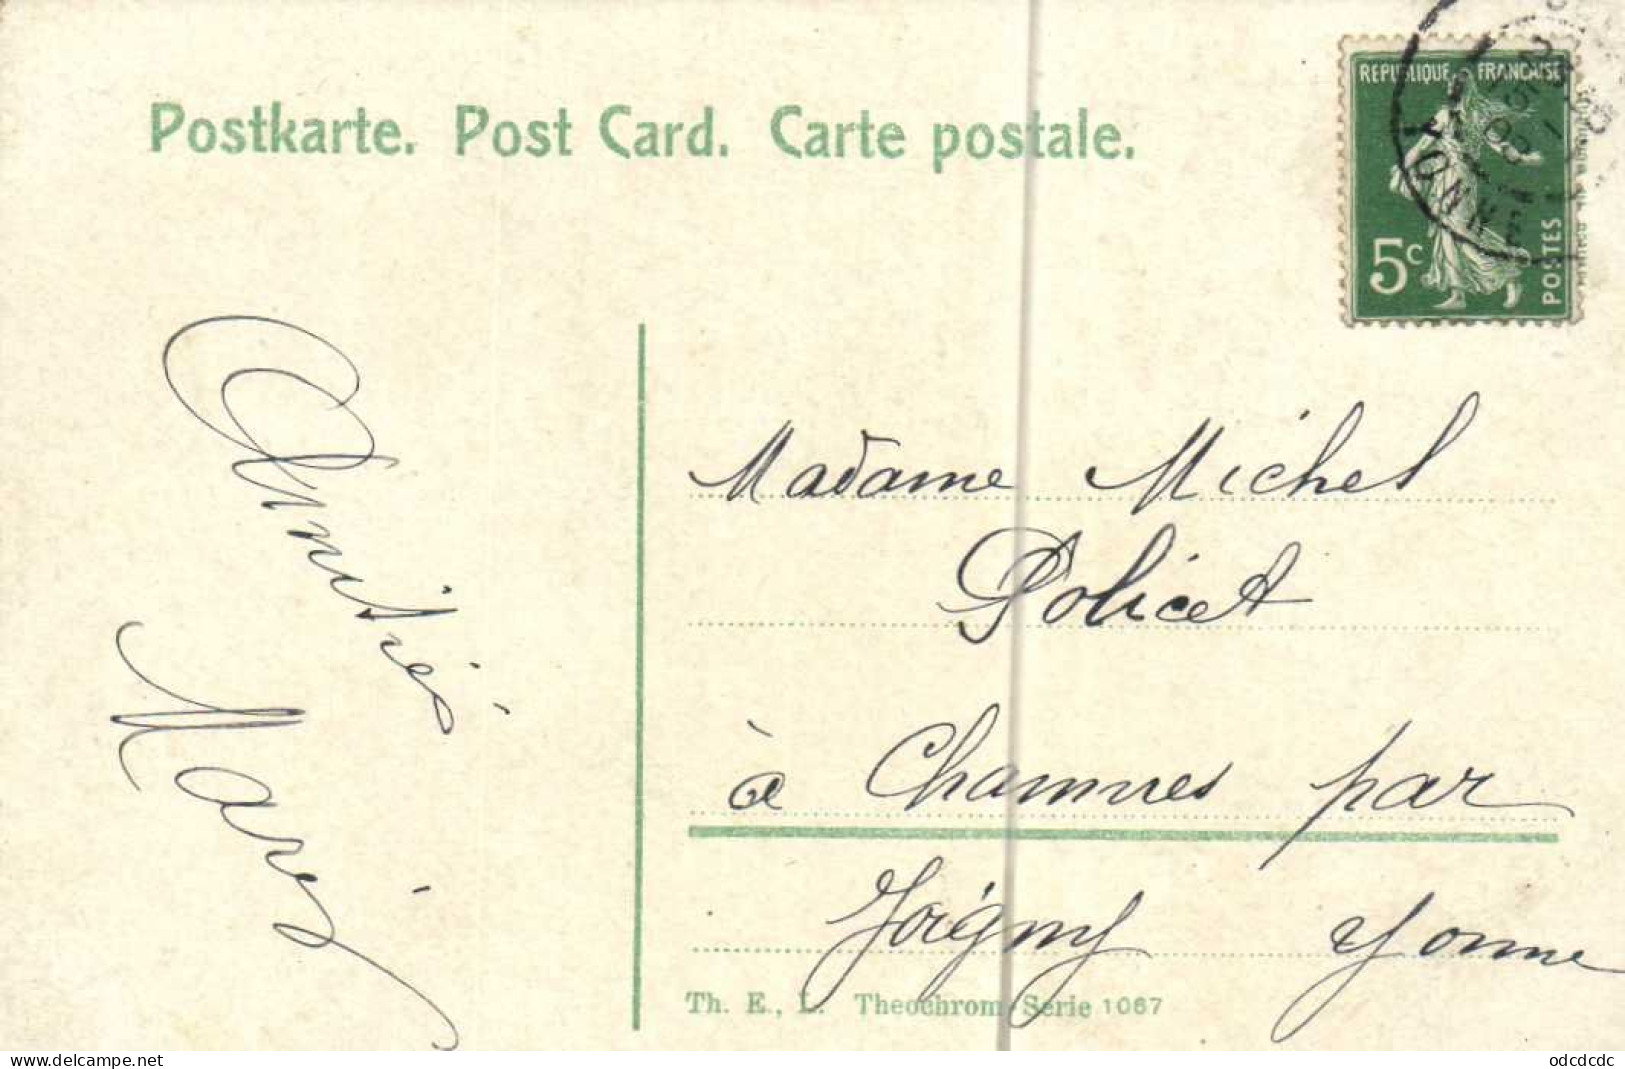 Postkarte. Post Card. Carte postale.
REPUBLIQUE FRANCAISE
5c
POSTES
YONNE
Amitiés
Madame Michel
Policet
à Chamvres par
Joigny Yonne
Th. E., L. Theochrom Serie 1067
www.delcampe.net
odcdcdc